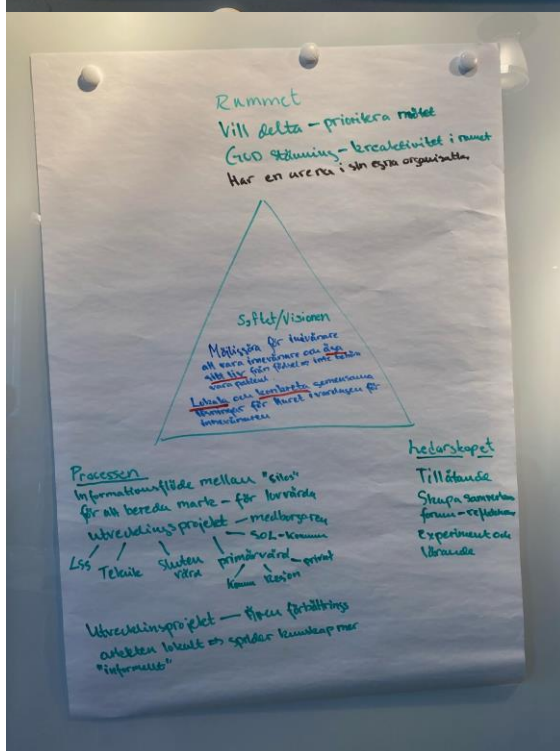 Rummet
Vill delta – prioritera mötet
God stämning – kreaktivitet i rummet
Har en arena i sin egna organisation
Syftet/Visionen
Möjliggöra för invånare
att vara innevånare och äga
sitt liv från födsel inte behöva
vara patient
Lokala och konkreta gemensamma
lösningar för livet i vardagen för
innevånaren
Processen
Informationsflöde mellan "silos"
för att bereda mark – för
utvecklingsprojekt – medborgaren
SOL-komm
LSS Teknik sluten vård primärvård – privat
Komm Region
Utvecklinsprojekt – Även förbättrings
lokalt => sprider kunskap mer
"informellt"
Ledarskapet
Tillåtande
Skapa
forum – reflektion
experiment och
lärande